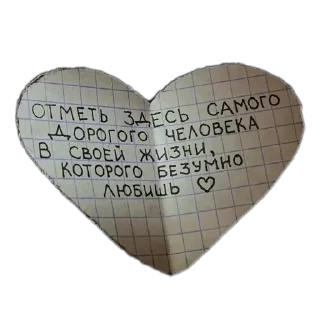 ОТМЕТЬ ЗДЕСЬ САМОГО
ДОРОГОГО ЧЕЛОВЕКА
В СВОЕЙ ЖИЗНИ,
КОТОРОГО БЕЗУМНО
ЛЮБИШЬ ♡